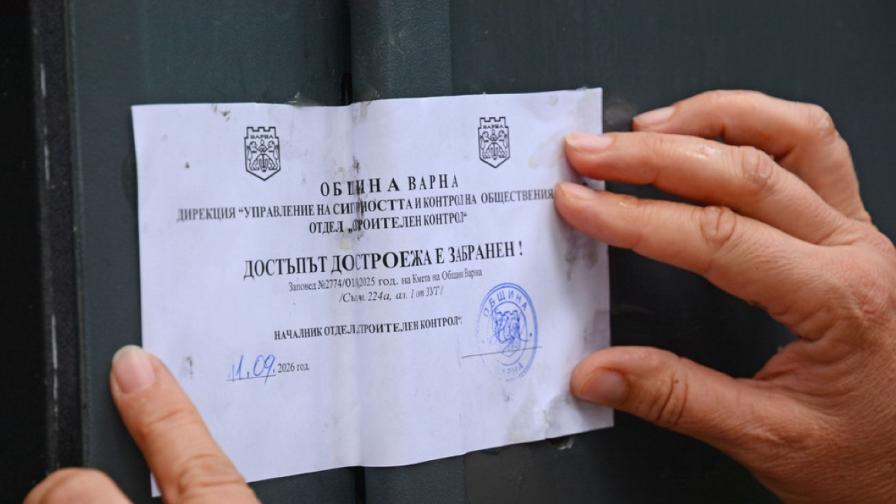 ВАРНА
ВАРНА
ОБЩИНА ВАРНА
ДИРЕКЦИЯ "УПРАВЛЕНИЕ НА СИГУРНОСТТА И КОНТРОЛ НА ОБЩЕСТВЕНИЯ
ОТДЕЛ „СТРОИТЕЛЕН КОНТРОЛ“
ДОСТЪПЪТ ДО СТРОЕЖА Е ЗАБРАНЕН !
Заповед 2025 год. на Кмета на Община Варна
/Съгл. 224а, ал. 1 от ЗУТ/
НАЧАЛНИК ОТДЕЛ „СТРОИТЕЛЕН КОНТРОЛ“:
11.09. 2026 год.
ОБЩИНА
ВАРНА